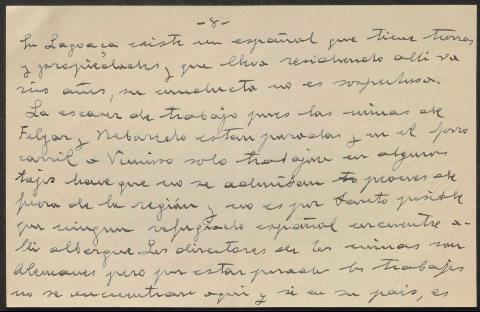 -8-
En Lagoaça existe un español que tiene tierras
y propiedades y que lleva residiendo alli va
rios años, su conducta no es sospechosa.
La escasez de trabajo pues las minas de
Felgar y Rebordo estan paradas y en el ferro
carril a Vimioso solo trabajan en algunos
tajos hace que no se admitan to peones de
fuera de la región y no es por tanto posible
que ningun refugiado español encuentre a-
lli albergue. Los directores de las minas son
Alemanes pero por estar parados los trabajos
no se encuentran aqui y si en su pais, es